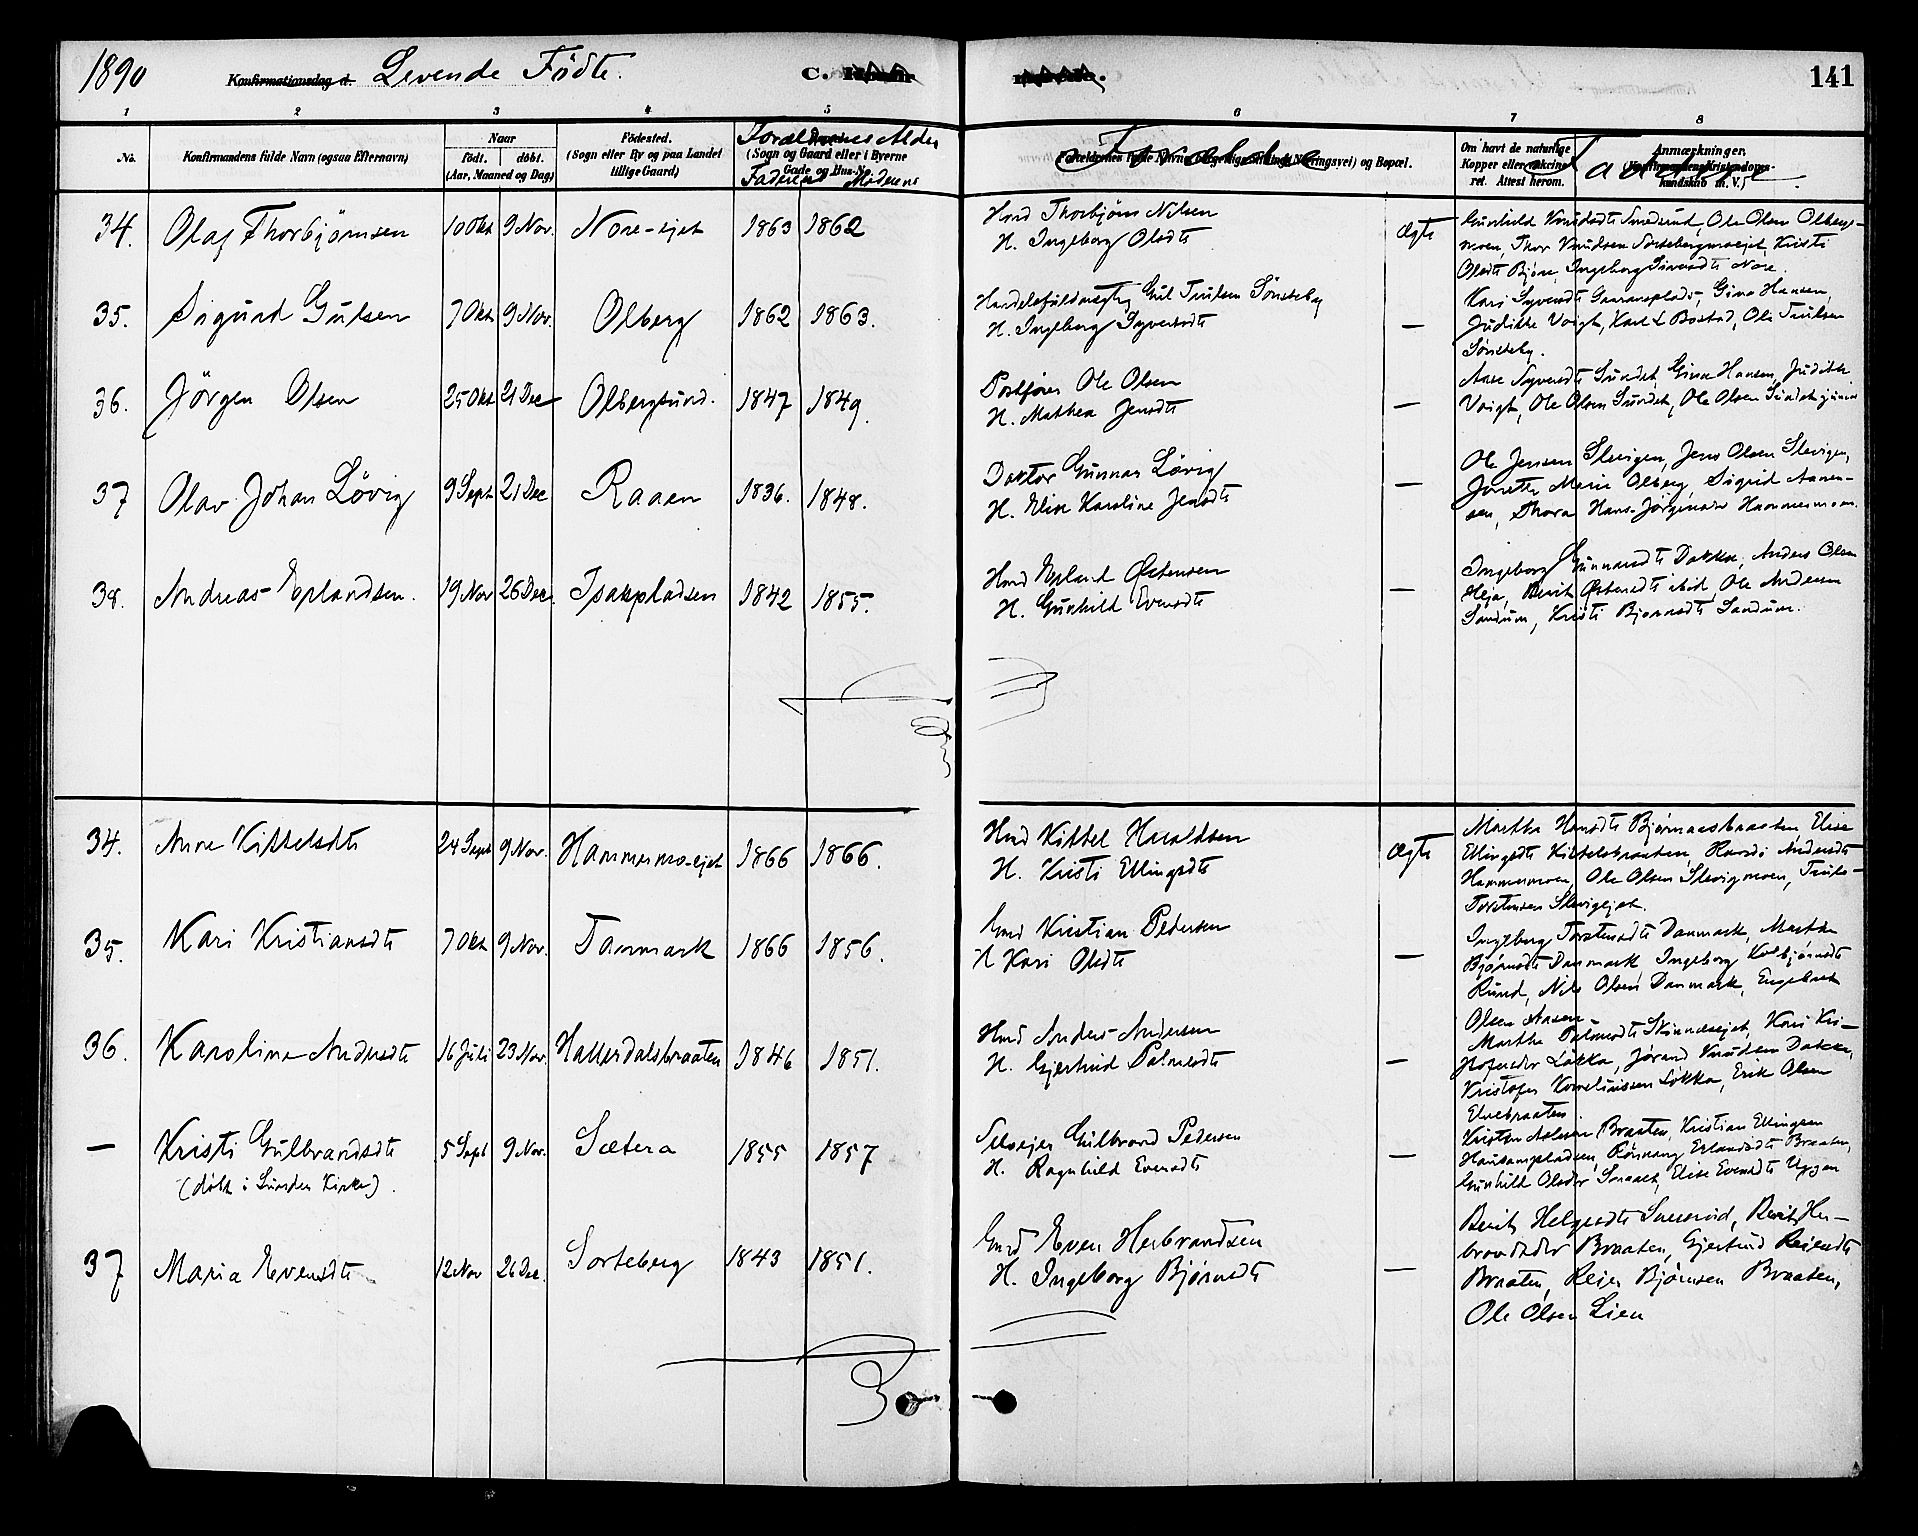 1890 Konfirmationsdag d. Levende Födte. C. 141
1 2 3 4 5 6 7 8
No. Konfirmandens fulde Navn (ogsaa Efternavn) Naar födt. döbt. (Aar, Maaned og Dag) Födested. (Sogn eller By og paa Landet tillige Gaard) Forældrenes Alder (Sogn og Gaard eller i Byerne Gade og Hus-No. Faderens Moderens Forældre Om havt de naturlige Kopper eller vakcineret. Attest herom. Faddere. Anmærkninger.
34. Olaf Thorbjörnsen 10 Okt 9 Nov. Nore-ejet 1863 1862 Hmd Thorbjörn Nilsen Ægte
H. Ingeborg Olsdt
Gunhild Knudsdt Smedsrud, Ole Olsen Olbergs-
moen, Thor Knudsen Sortebergmoejet, Kristi
Olsdt Björe, Ingeborg Siversdt Nore.
35. Sigurd Gulsen 7 Okt 9 Nov. Olberg 1862 1863. Handelsfuldmægtig Gul Trulsen Sönsteby —
H. Ingeborg Syversdt
Kari Syversdt Gaaransplads, Gina Hansen,
Judithe Voigt, Karl L Bostad, Ole Trulsen
Sönsteby.
36. Jörgen Olsen 25 Okt 21 Dec Olbergsund. 1847 1849. Postförer Ole Olsen —
H. Mathea Jensdt
Aase Syversdt Sundet, Gina Hansen, Judithe
Voigt, Ole Olsen Sundet, Ole Olsen Sundet junior
37 Olav Johan Lövig 9 Sept 21 Dec Raaen 1836. 1848. Doktor Gunnar Lövig —
H. Elise Karoline Jensdt
Ole Jensen Slevigen, Jens Olsen Slevigen,
Marie Olberg, Sigrid Aanen-
sen, Thora Hans-Jörginader Hammermoen.
38. Andreas Erlandsen. 19 Nov 26 Dec. Isakpladsen 1842 1855. Hmd Erland Östensen —
H. Gunhild Evensdt
Ingeborg Gunnarsdt Dokka, Anders Olsen
Heja, Berit Östensdt ibid, Ole Andersen
Sandum, Kristi Bjornsdt Sandum.
34. Anne Kittelsdt 24 Sept 9 Nov. Hammermo-ejet 1866 1866. Hmd Kittel Haraldsen Ægte
H. Kristi Ellingsdt
Martha Hansdt Björnaasbraaten, Elise
Ellingsdt Kittelsbraaten, Andersdt
Hammermoen, Ole Olsen Slevigmoen, Truls
Torstensen Slevigejet.
35. Kari Kristiansdt 7 Okt 9 Nov. Danmark 1866 1856. Gmd Kristian Pedersen —
H Kari Olsdt
Ingeborg Torstensdt Danmark, Martha
Björnsdt Danmark, Ingeborg Kolbjörnsdt
Rund, Nils Olsen Danmark, Engebret
Olsen Aasen
36. Karoline Andersdt 16 Juli 23 Nov. Hallesdalsbraaten 1846 1851. Hmd Anders Andersen —
H. Gjertrud Palmesdt
Martha Palmesdt Skinnesejet, Kari Kri-
stofersdr Lökka, Jörand Knudsen Dokka,
Kristofer Korneliussen Lökka, Erik Olsen
Elvebraaten
— Kristi Gulbrandsdt 5 Sept 9 Nov. Sætera 1855 1857 Selvejer Gulbrand Pedersen —
(döbt i Lunder Kirke). H. Ragnhild Evensdt
Kristen Braaten, Kristian Ellingsen
Rönnaug Erlandsdt Braaten,
Gunhild Olsdr Elise Evensdt Uggen
37 Maria Evensdt 12 Nov 26 Dec. Sorteberg 1843 1851. Gmd Even Herbrandsen —
H. Ingeborg Björnsdt
Berit Helgesdt Berit Her-
brandsdr Braaten, Gjertrud Reiersdt
Braaten, Reier Björnsen Braaten,
Ole Olsen Lien